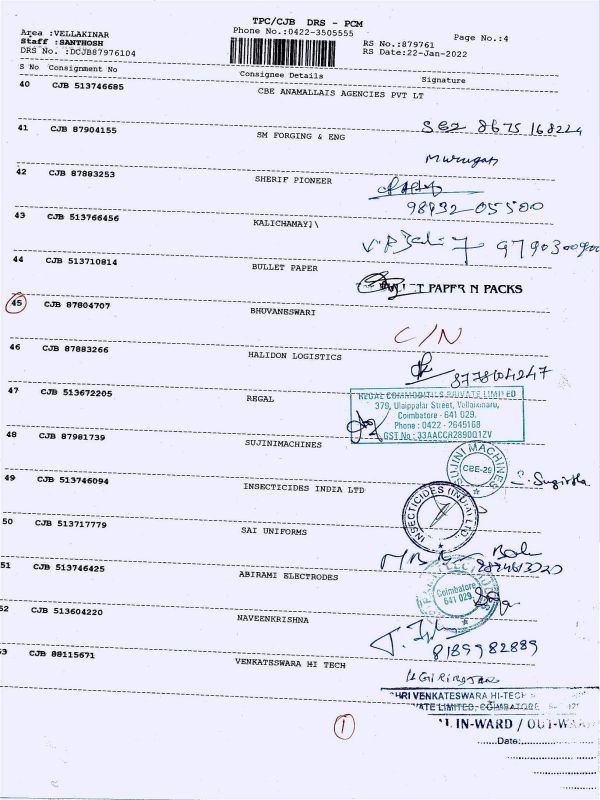 TPC/CJB DRS - PCM
Area :VELLAKINAR
Phone No.:0422-3505555
Page No.:4
Staff : SANTHOSH
RS No.:879761
DRS No. :DCJB87976104
RS Date:22-Jan-2022
S No Consignment No Consignee Details Signature
40 CJB 513746685 CBE ANAMALLAIS AGENCIES PVT LT
41 CJB 87904155 SM FORGING & ENG 8675168224
Murugan
42 CJB 87883253 SHERIF PIONEER
98932-05500
43 CJB 513766456 KALICHAMAY]\
44 CJB 513710814 BULLET PAPER
T PAPER N PACKS
45 CJB 87804707 BHUVANESWARI
C/N
46 CJB 87883266 HALIDON LOGISTICS
8778104247
47 CJB 513672205 REGAL
REGAL COMMODITIES PRIVATE LIMITED
379, Ulaippalar Street, Vellakinaru,
Coimbatore - 641 029.
Phone : 0422 - 2645168
GST No : 33AACCR2890Q1ZV
48 CJB 87981739 SUJINIMACHINES
SUJINI MACHINES
CBE-29
49 CJB 513746094 INSECTICIDES INDIA LTD
INSECTICIDES (INDIA) LTD.
50 CJB 513717779 SAI UNIFORMS
51 CJB 513746425 ABIRAMI ELECTRODES
Coimbatore
641 029
52 CJB 513604220 NAVEENKRISHNA
8189982889
53 CJB 88115671 VENKATESWARA HI TECH
HRI VENKATESWARA HI-TECH
VATE LIMITED, COIMBATORE
IN-WARD / OUT-WA
Date:
1